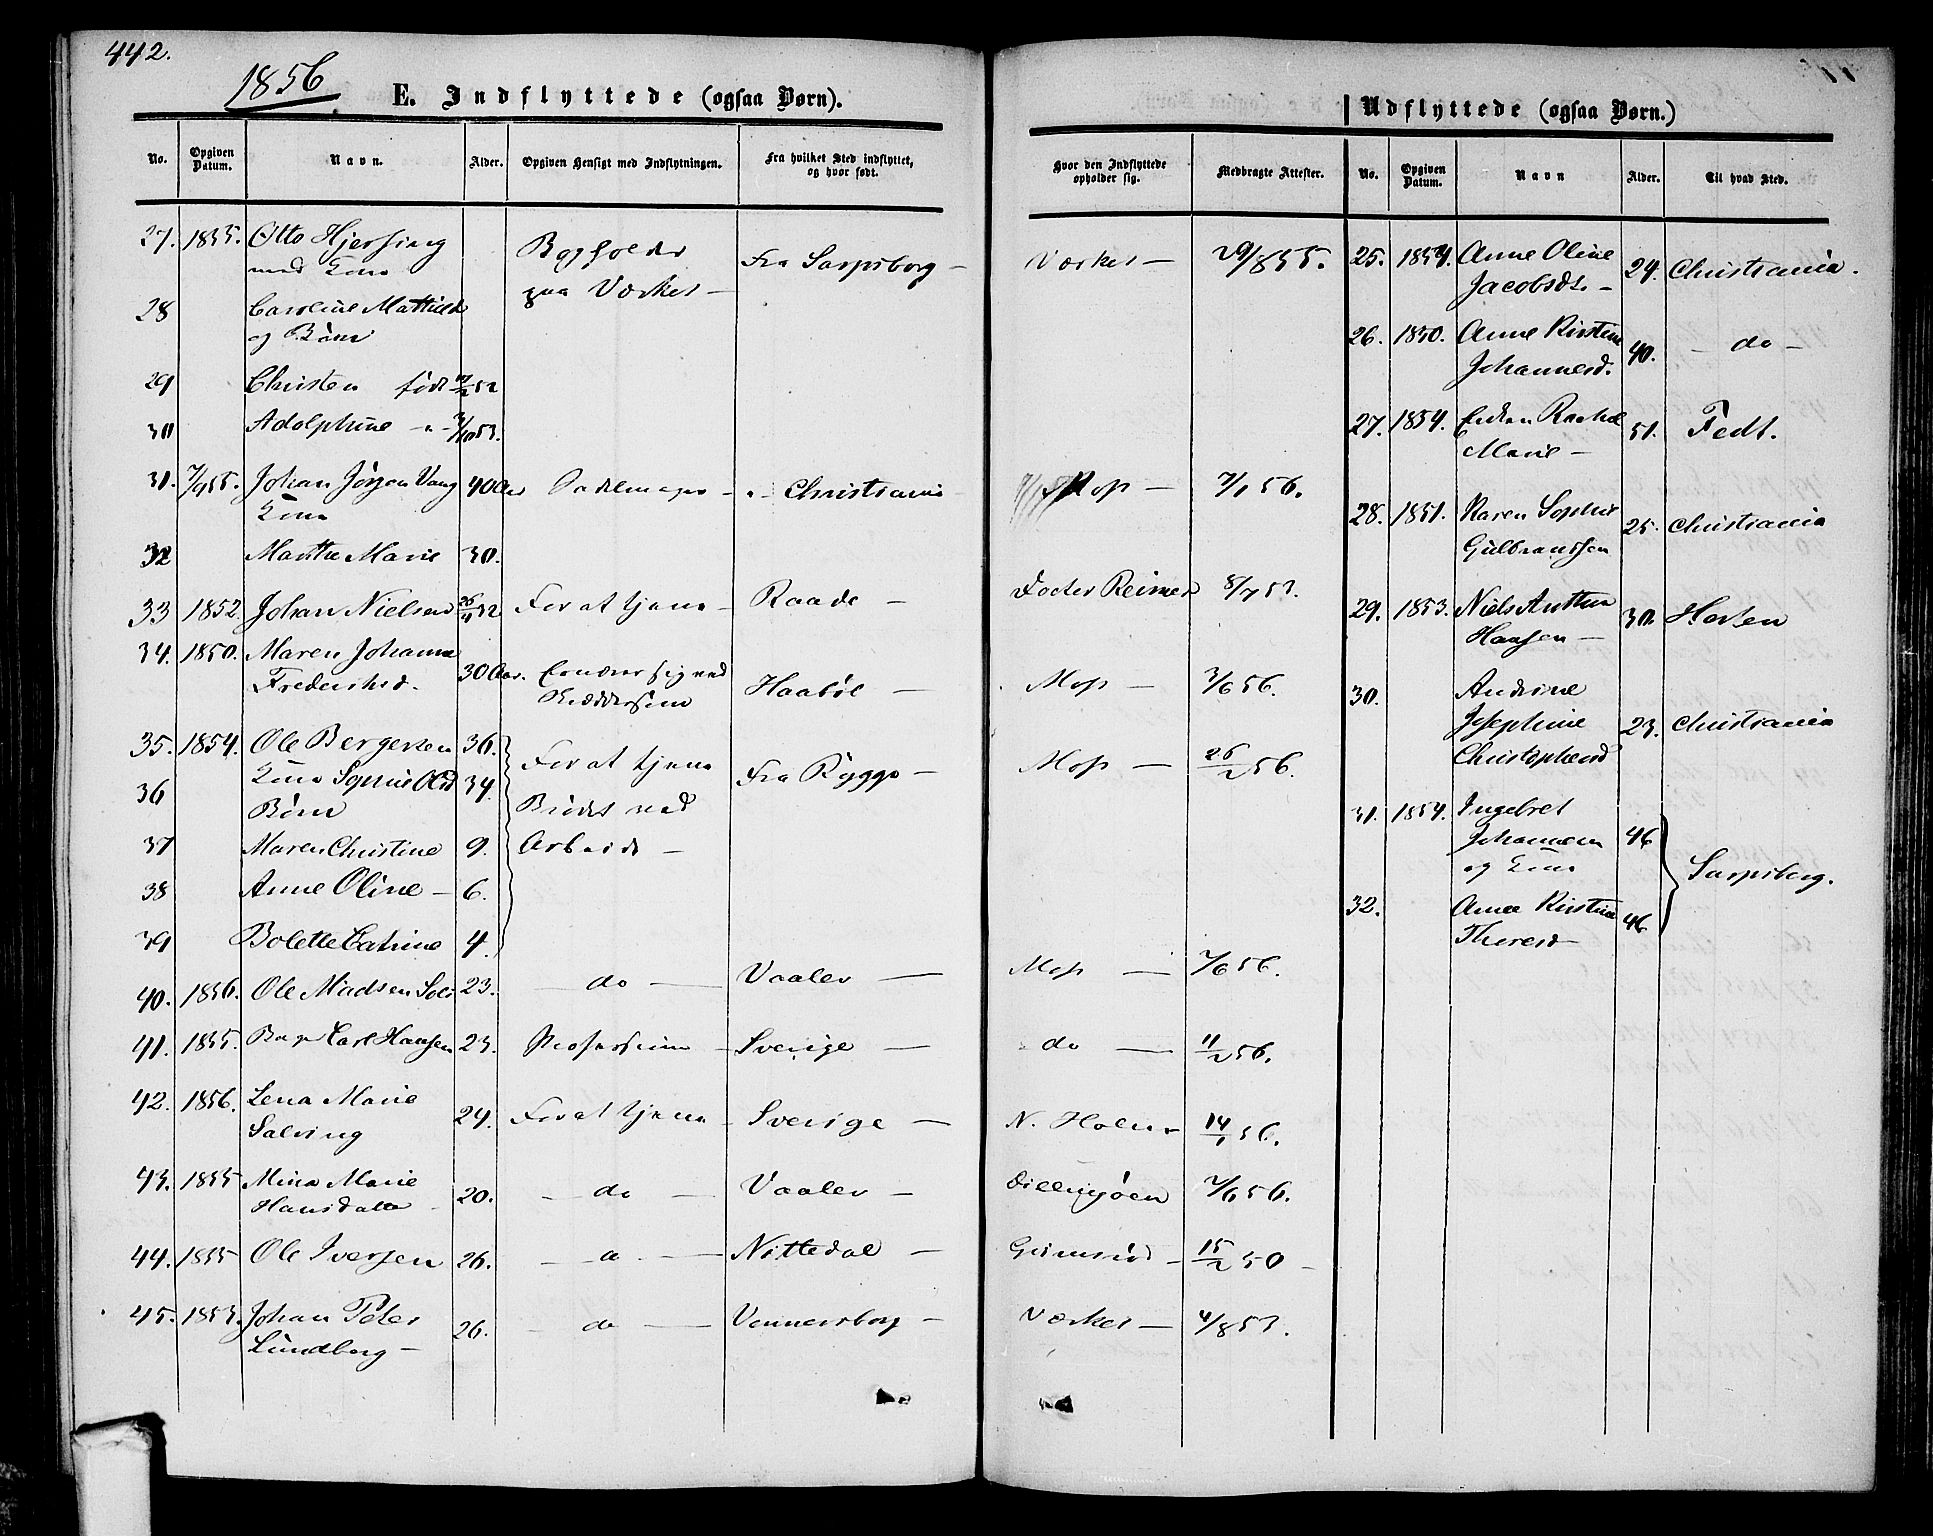 442.
1856
E. Indflyttede (ogsaa Børn).
No. Opgiven Datum. Navn. Alder. Opgiven Hensigt med Indflytningen. Fra hvilket Sted indflyttet, og hvor født.
27. 1855. Otto Hjersing Bogholder Fra Sarpsborg —
med Kone paa Værket —
28 Caroline Mathilde
og Børn
29 Christen født 52
30 Adolphine - " - 3/10 53.
31. 7/9 55. Johan Jørgen Vang 40 Aar Sadelmager - " - Christiania -
Kone
32 Marthe Marie 30.
33 1852. Johan Nielsen For at tjene - Raade -
34. 1850. Maren Johanne 30 Aar. Ernærer sig ved Haabøl —
Frederiksd.
35. 1854. Ole Bergersen 36. For at tjene Fra Rygge -
36 Kone Sophie Olsd 34. Brødet ved
Børn
37 Maren Christine 9. Arbeide —
38 Anne Oline — 6.
39 Bolette Catrine 4.
40. 1856. Ole Madsen 23. — do — Vaaler —
41. 1855. Carl Hansen 23. Professionen - Sverige —
42. 1856. Lena Marie 24. For at tjene - Sverige —
Salving
43. 1855 Mina Marie 20. — do — Vaaler —
Hansdatter
44. 1855 Ole Iversen 26. — do — Nittedal —
45. 1853. Johan Peter 26. — do — Vennersborg —
Lundberg —
Udflyttede (ogsaa Børn.)
Hvor den Indflyttede opholder sig. Medbragte Attester. No. Opgiven Datum. Navn Alder. Til hvad Sted.
Værket — 29/8 55.
Moss — 7/1 56.
Docter Reimer 8/7 53.
Moss — 3/6 56.
Moss — 26/2 56.
Moss — 7/6 56.
do — 11/2 56.
N. Holm 14/1 56.
Dillingøen 7/6 56.
15/2 50 -
Værket — 4/8 53.
25. 1854. Anne Oline 24. Christiania.
Jacobsdt. —
26. 1850. Anne Kirstine 40. — do —
Johannesd.
27. 1854. Enken Rachel 51. Fedt.
Marie —
28. 1851. Karen Sophie 25. Christiania
Gulbranssen
29. 1853. Niels Anthon 30. Horten
Hansen —
30. Andrine
Josephine 23. Christiania
Christophersd
31. 1854. Ingebret
Johannesen 46
og Kone Sarpsborg.
32. Anne Kirstine 46
Thoresd